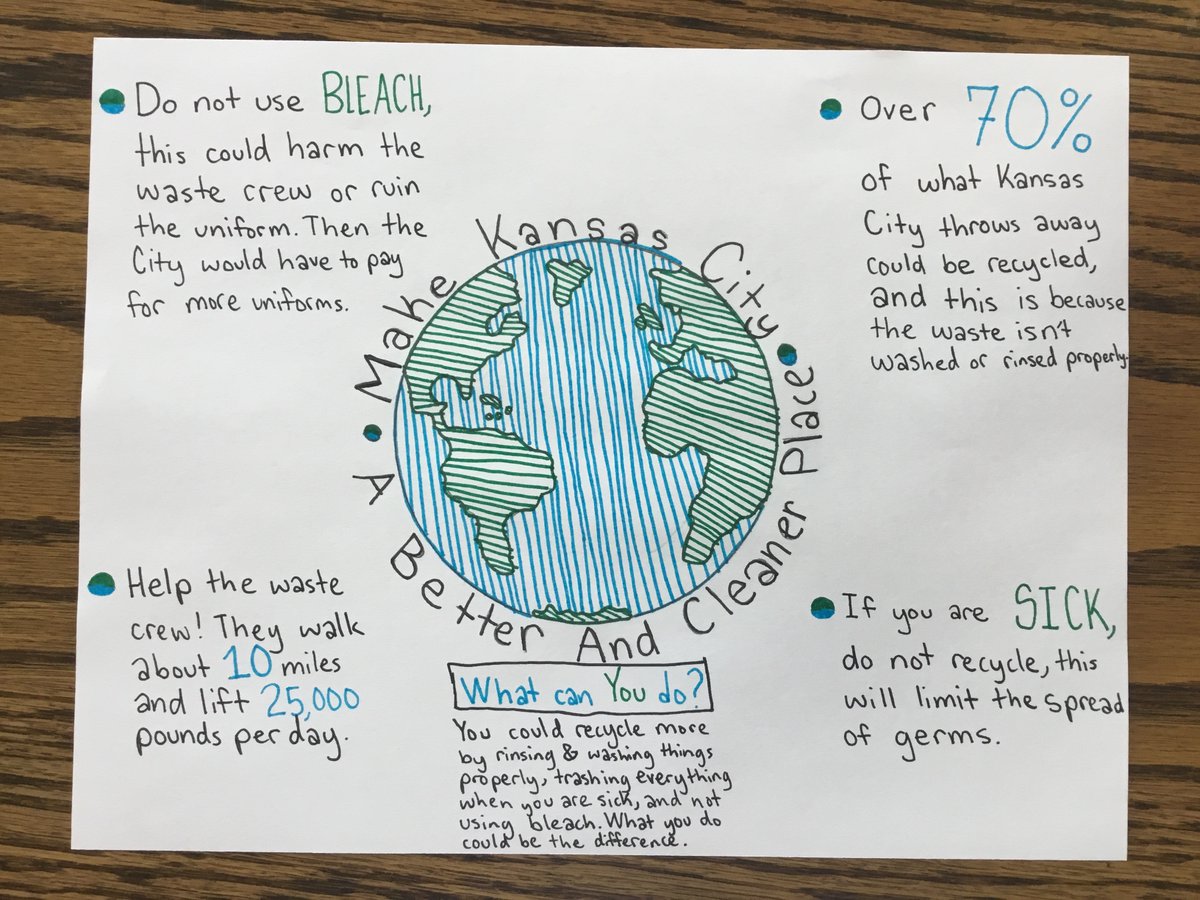 Do not use BLEACH,
this could harm the
waste crew or ruin
the uniform. Then the
City would have to pay
for more uniforms.
Over 70%
of what Kansas
City throws away
could be recycled,
and this is because
the waste isn't
washed or rinsed properly.
Make Kansas City
A Better And Cleaner Place
Help the waste
crew! They walk
about 10 miles
and lift 25,000
pounds per day.
If you are SICK,
do not recycle, this
will limit the spread
of germs.
What can You do?
You could recycle more
by rinsing & washing things
properly, trashing everything
when you are sick, and not
using bleach. What you do
could be the difference.